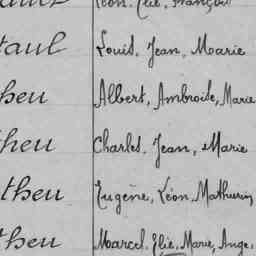 Léon, Elie, François
Paul Louis, Jean, Marie
heu Albert, Ambroise, Marie
heu Charles, Jean, Marie
theu Eugène, Léon, Mathurin,
heu Marcel, Elie, Marie, Ange,